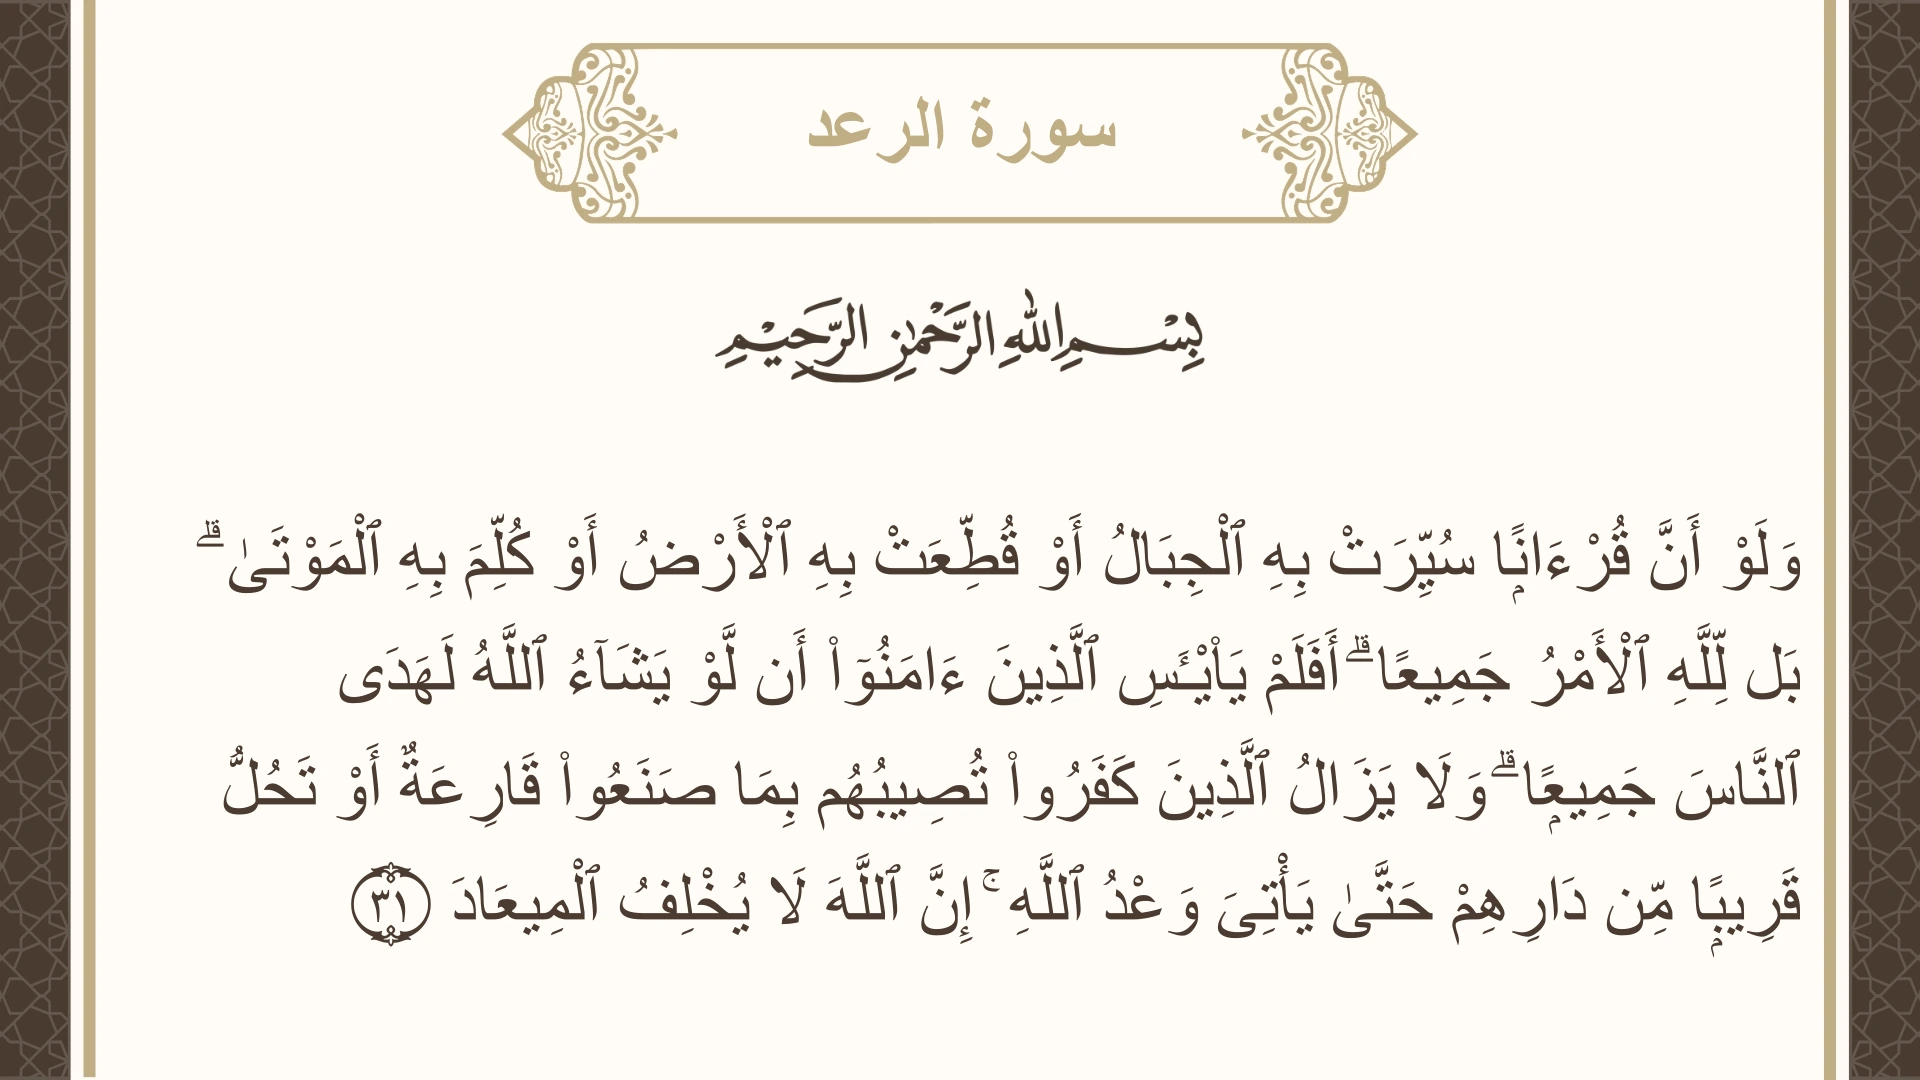 سورة الرعد
بِسْمِ اللهِ الرَّحْمٰنِ الرَّحِيْمِ
وَلَوْ أَنَّ قُرْءَانًۭا سُيِّرَتْ بِهِ ٱلْجِبَالُ أَوْ قُطِّعَتْ بِهِ ٱلْأَرْضُ أَوْ كُلِّمَ بِهِ ٱلْمَوْتَىٰ ۗ
بَل لِّلَّهِ ٱلْأَمْرُ جَمِيعًا ۗ أَفَلَمْ يَا۟يْـَٔسِ ٱلَّذِينَ ءَامَنُوٓا۟ أَن لَّوْ يَشَآءُ ٱللَّهُ لَهَدَى
ٱلنَّاسَ جَمِيعًۭا ۗ وَلَا يَزَالُ ٱلَّذِينَ كَفَرُوا۟ تُصِيبُهُم بِمَا صَنَعُوا۟ قَارِعَةٌ أَوْ تَحُلُّ
قَرِيبًۭا مِّن دَارِهِمْ حَتَّىٰ يَأْتِىَ وَعْدُ ٱللَّهِ ۚ إِنَّ ٱللَّهَ لَا يُخْلِفُ ٱلْمِيعَادَ ٣١